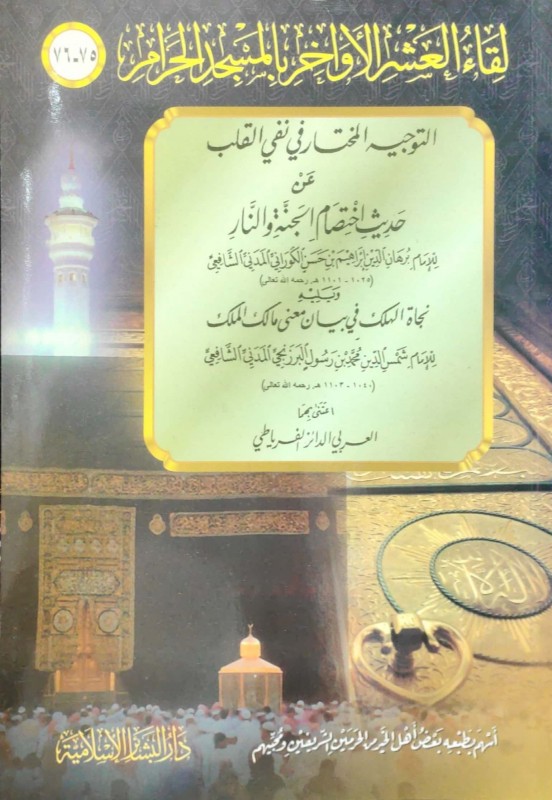 لِقَاءُ العَشْرِ الأَوَاخِرِ بِالمَسْجِدِ الحَرَامِ
٧٥-٧٦
التوجيه المختار في نفي القلب
عَنْ
حَدِيثِ اخْتِصَامِ الجَنَّةِ وَالنَّارِ
لِلإِمَامِ بُرهَانِ الدِّينِ إِبْرَاهِيمَ بْنِ حَسَنٍ الكُورَانِيِّ المَدَنِيِّ الشَّافِعِيِّ
(١٠٢٥ - ١١٠١ هـ رحمه الله تعالى)
وَيَلِيهِ
نجاة الهلك في بيان معنى مالك الملك
لِلإِمَامِ شَمْسِ الدِّينِ مُحَمَّدِ بْنِ رَسُولٍ البَرْزَنْجِيِّ المَدَنِيِّ الشَّافِعِيِّ
(١٠٤٠ - ١١٠٣ هـ رحمه الله تعالى)
اعْتَنَى بِهِمَا
العربي الدائز الفرياطي
أَسْهَمَ بِطَبْعِهِ بَعْضُ أَهْلِ الخَيْرِ مِنَ الحَرَمَيْنِ الشَّرِيفَيْنِ وَمُحِبِّيهِمْ
دَارُ البَشَائِرِ الإِسْلَامِيَّةِ